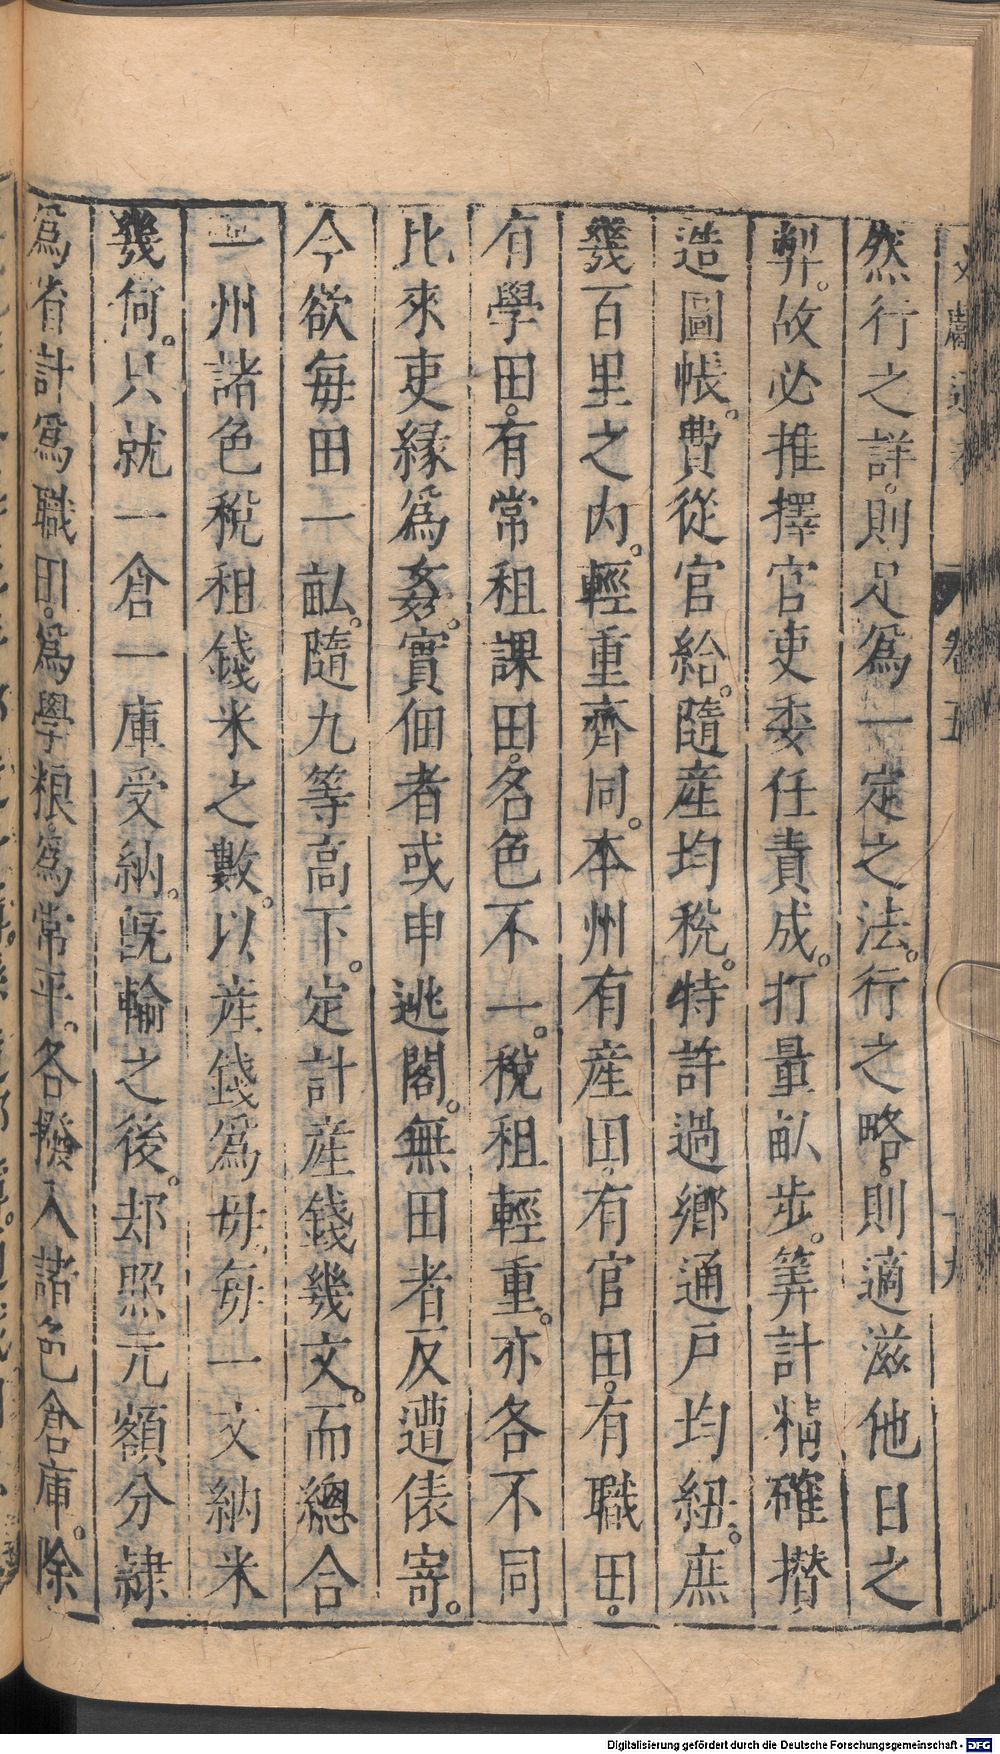 文獻通考 卷五 十九
然行之詳。則足爲一定之法。行之略。則適滋他日之
弊。故必推擇官吏委任責成。打量畝步。筭計精確攅
造圖帳。費從官給。隨産均稅。特許過鄉通戸均紐。庶
幾百里之内。輕重齊同。本州有産田。有官田。有職田。
有學田。有常租課田。名色不一。稅租輕重。亦各不同
比來吏緣爲姦。實佃者或申逃閣。無田者反遭俵寄。
今欲每田一畝。隨九等高下。定計産錢幾文。而總合
一州諸色稅租錢米之數。以産錢爲母。每一文納米
幾何。只就一倉一庫受納。旣輸之後。却照元額分隸
爲省計爲職田。爲學粮。爲常平。各撥入諸色倉庫。除
Digitalisierung gefördert durch die Deutsche Forschungsgemeinschaft - DFG